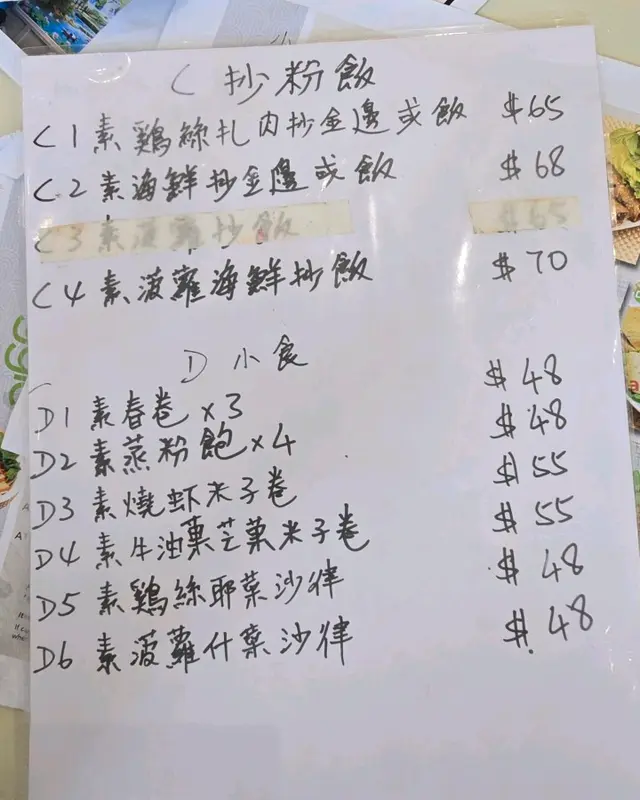 C 抄粉飯
C1 素鷄絲扎肉抄金邊或飯 $65
C2 素海鮮抄金邊或飯 $68
C3 素菠蘿抄飯 $65
C4 素菠蘿海鮮抄飯 $70
D 小食
D1 素春卷 x3 $48
D2 素蒸粉飽 x4 $48
D3 素燒虾米子卷 $55
D4 素牛油菓芒菓米子卷 $55
D5 素鷄絲耶菜沙律 $48
D6 素菠蘿什菜沙律 $48